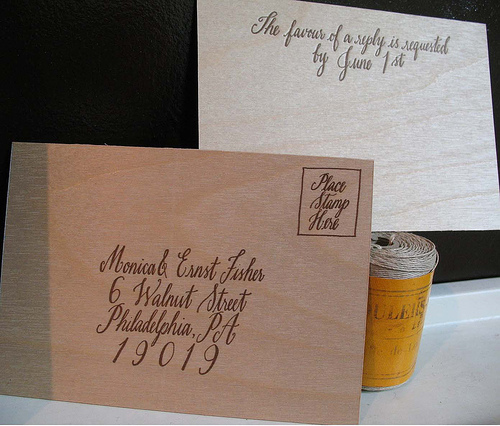 The favour of a reply is requested
by June 1st
Place
Stamp
Here
Monica & Ernst Fisher
6 Walnut Street
Philadelphia, PA
19019